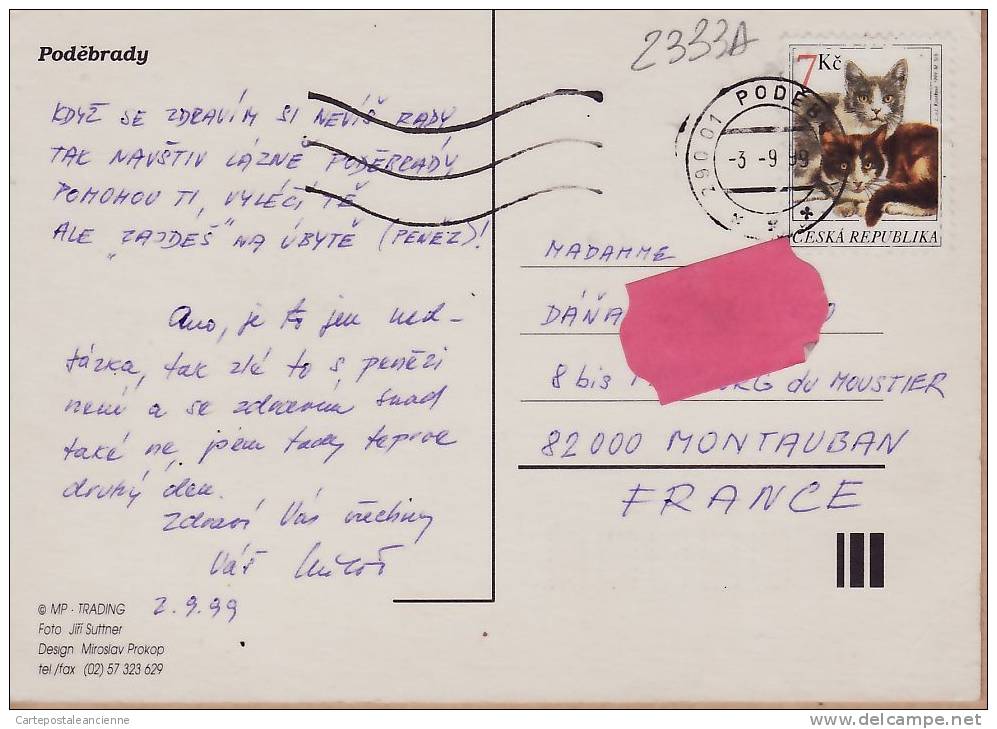 Poděbrady
2333A
7 Kč
ČESKÁ REPUBLIKA
290 01 PODĚB
-3.-9.99
KDYŽ SE ZDRAVÍM SI NEVÍŠ RADY
TAK NAVŠTIV LÁZNĚ PODĚBRADY
POMOHOU TI, VYLÉČÍ TĚ
ALE "ZAJDEŠ" NA ÚBYTĚ (PENĚZ)!
Ano, je to jen nad-
sázka, tak zlé to s penězi
není a se zdravím snad
také ne, jsem tady teprve
druhý den.
Zdraví Vás všechny
Váš
2.9.99
MADAMME
DÁŇA
8 bis du MOUSTIER
82000 MONTAUBAN
FRANCE
© MP - TRADING
Foto Jiří Suttner
Design Miroslav Prokop
tel./fax (02) 57 323 629
Cartepostaleancienne
www.delcampe.net